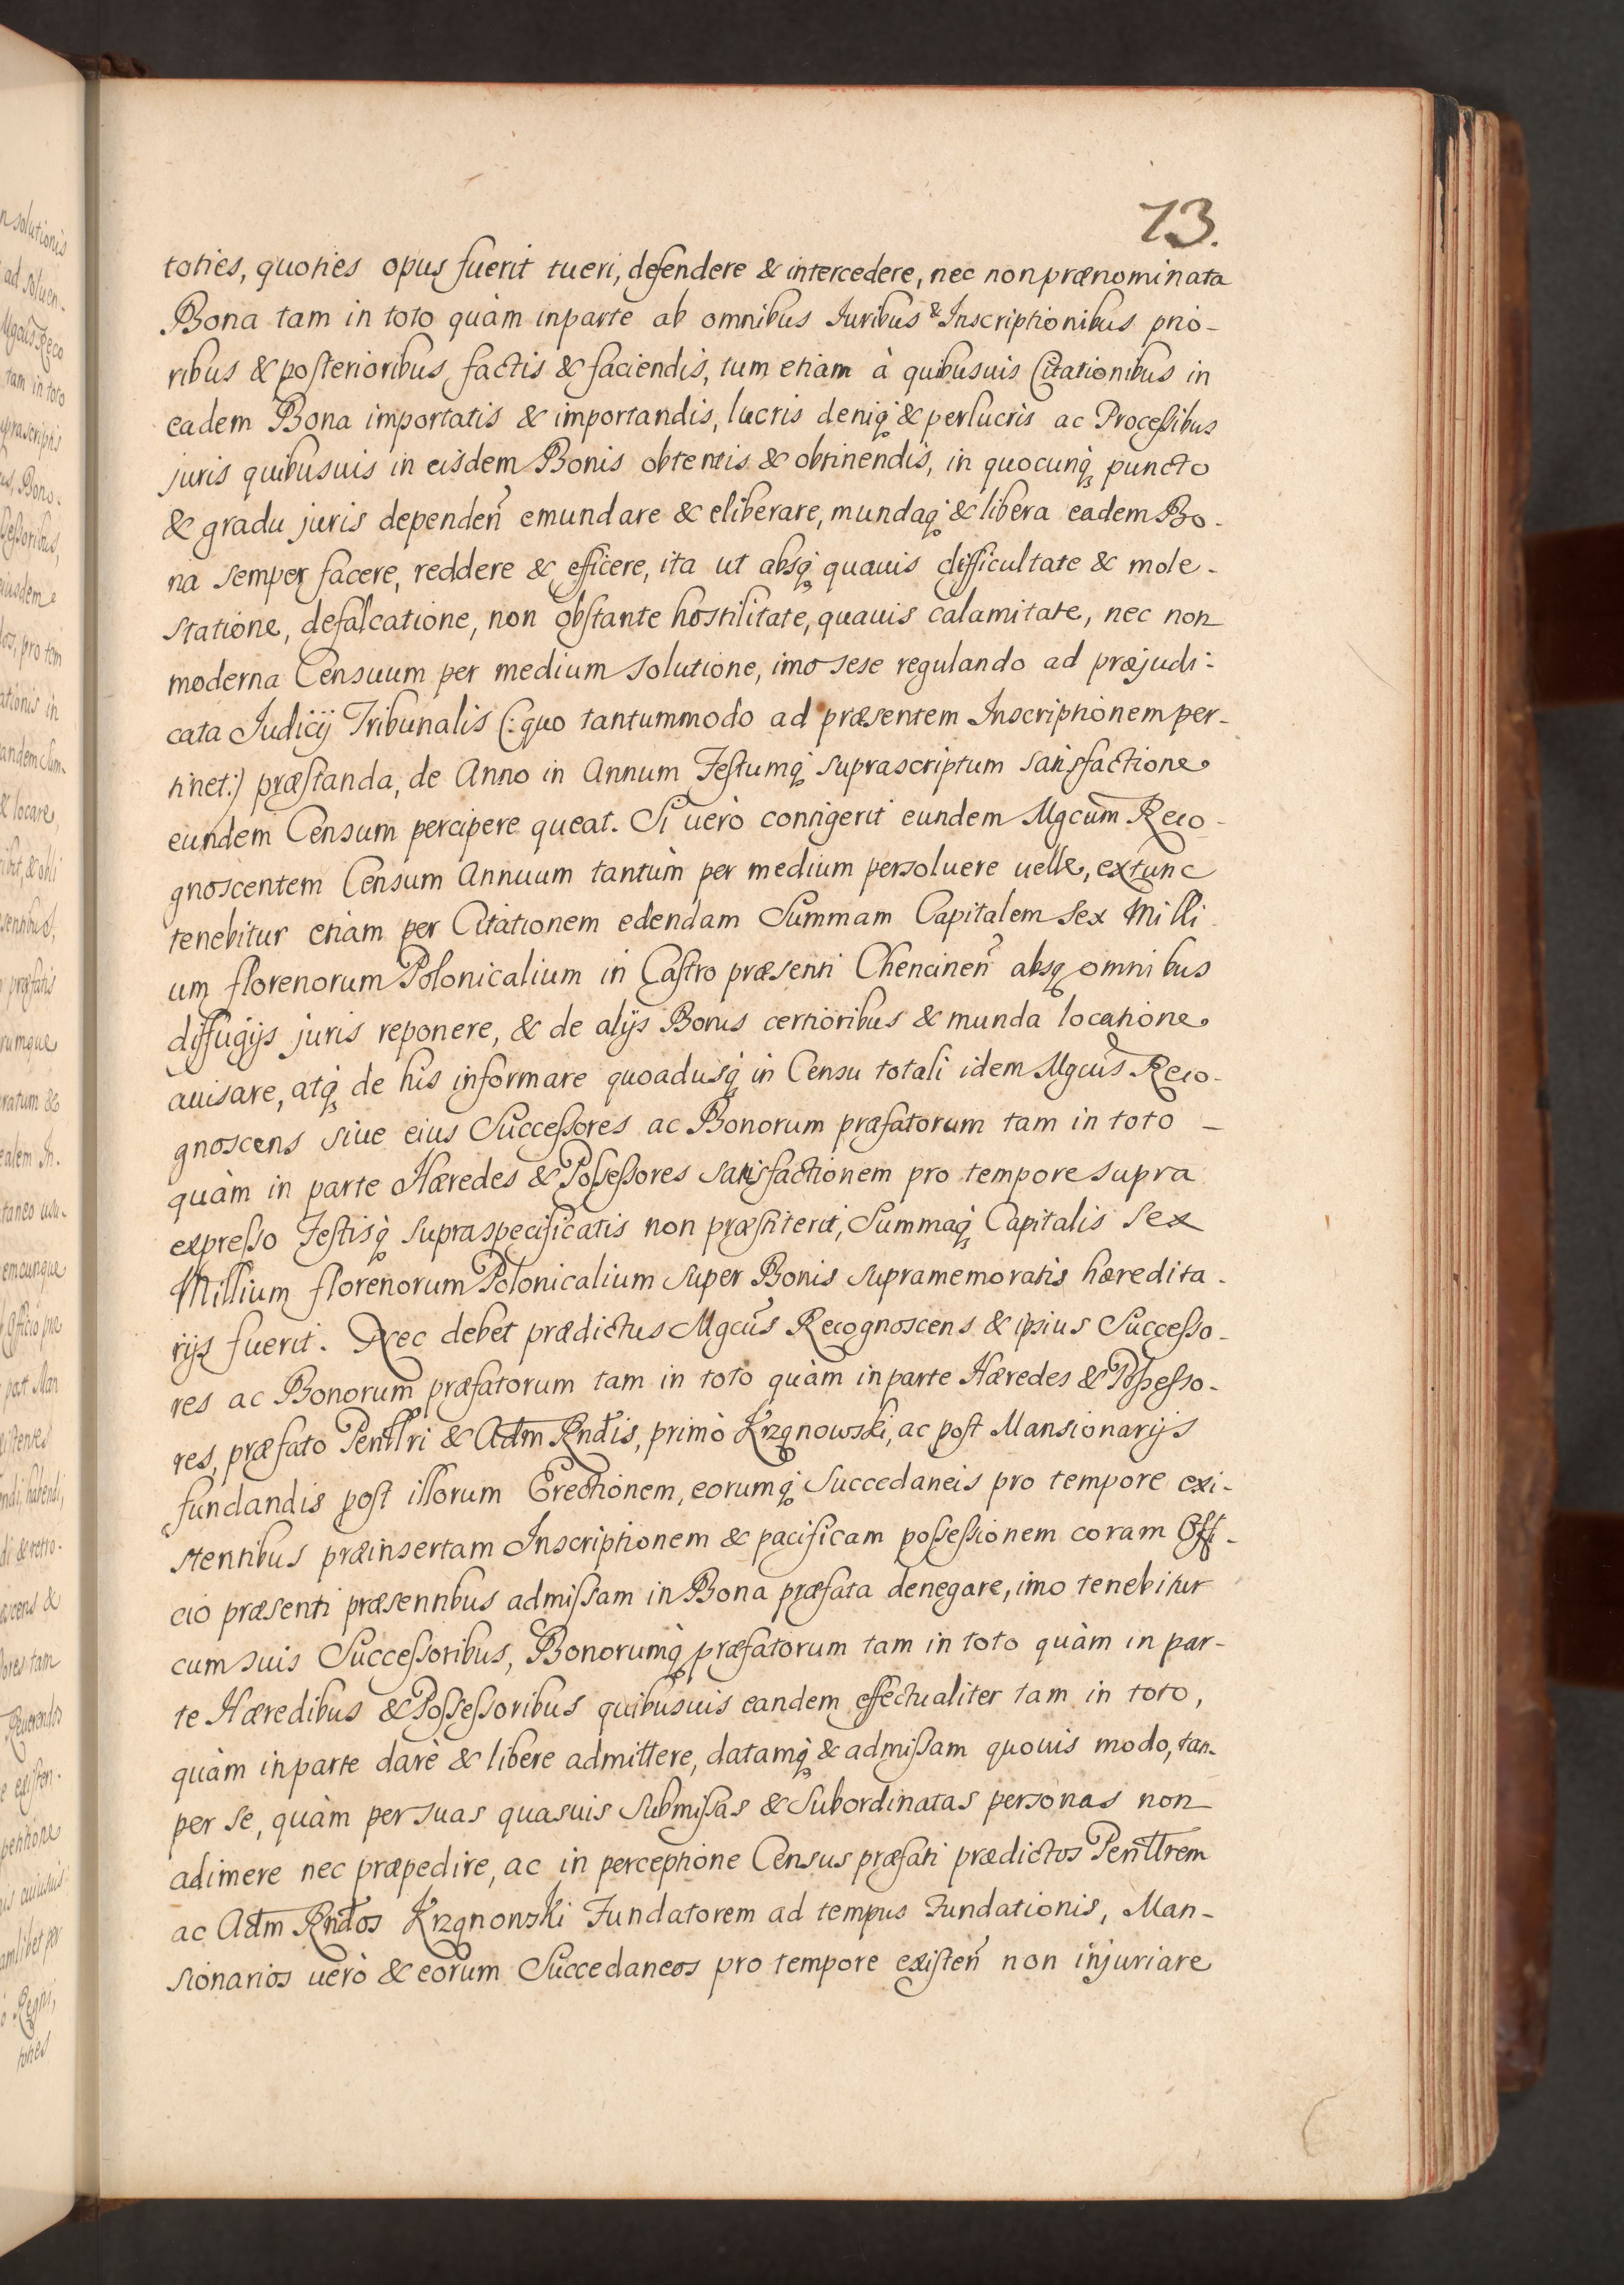 73.
toties, quoties opus fuerit tueri, defendere & intercedere, nec non prænominata
Bona tam in toto quàm in parte ab omnibus Iuribus & Inscriptionibus prio-
ribus & posterioribus factis & faciendis, tum etiam à quibusuis Citationibus in
eadem Bona importatis & importandis, lucris deniq; & perlucris ac Processibus
juris quibusuis in eisdem Bonis obtentis & obtinendis, in quocunq; puncto
& gradu juris dependeñ emundare & eliberare, mundaq; & libera eadem Bo-
na semper facere, reddere & efficere, ita ut absq; quauis difficultate & mole-
statione, defalcatione, non obstante hostilitate, quauis calamitate, nec non
moderna Censuum per medium solutione, imo sese regulando ad præjudi-
cata Judicij Tribunalis (: quo tantummodo ad præsentem Inscriptionem per-
tinet :) præstanda, de Anno in Annum Festumq; suprascriptum satisfactione
eundem Censum percipere queat. Si uerò contigerit eundem Mgcum̃ Reco-
gnoscentem Censum Annuum tantùm per medium persoluere uelle, extunc
tenebitur etiam per Citationem edendam Summam Capitalem Sex Milli
um florenorum Polonicalium in Castro præsenti Chencineñ absq; omnibus
diffugijs juris reponere, & de alijs Bonis certioribus & munda locatione
auisare, atq; de his informare quoadusq; in Censu totali idem Mgcus̃ Reco-
gnoscens siue eius Successores ac Bonorum præfatorum tam in toto -
quàm in parte Hæredes & Possessores satisfactionem pro tempore supra
expresso Festisq; supraspecificatis non præstiterit, Summaq; Capitalis Sex
Millium florenorum Polonicalium super Bonis supramemoratis hæredita-
rijs fuerit. Nec debet prædictus Mgcus̃ Recognoscens & ipsius Successo-
res ac Bonorum præfatorum tam in toto quàm in parte Hæredes & Possesso-
res, præfato Penttri & Adm̃ Rndis̃, primò Krzqnowski, ac post Mansionarijs
fundandis post illorum Erectionem, eorumq; Succedaneis pro tempore exi-
stentibus præinsertam Inscriptionem & pacificam possessionem coram Offi-
cio præsenti præsentibus admissam in Bona præfata denegare, imo tenebitur
cum suis Successoribus, Bonorumq; præfatorum tam in toto quàm in par-
te Hæredibus & Possessoribus quibusuis eandem effectualiter tam in toto,
quàm in parte dare & libere admittere, datamq; & admissam quouis modo, tan-
per se, quàm per suas quasuis submissas & Subordinatas personas non
adimere nec præpedire, ac in perceptione Census præfati prædictos Penttrem
ac Adm̃ Rndos̃ Krzqnonski Fundatorem ad tempus Fundationis, Man-
sionarios uerò & eorum Succedaneos pro tempore existeñ non injuriare